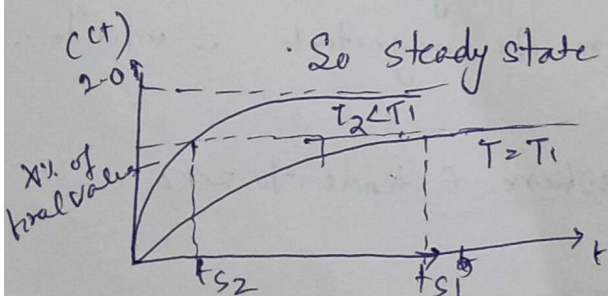 C(t)
So steady state
2.0
T2<T1
X% of
final value
T=T1
tS2
tS1
t